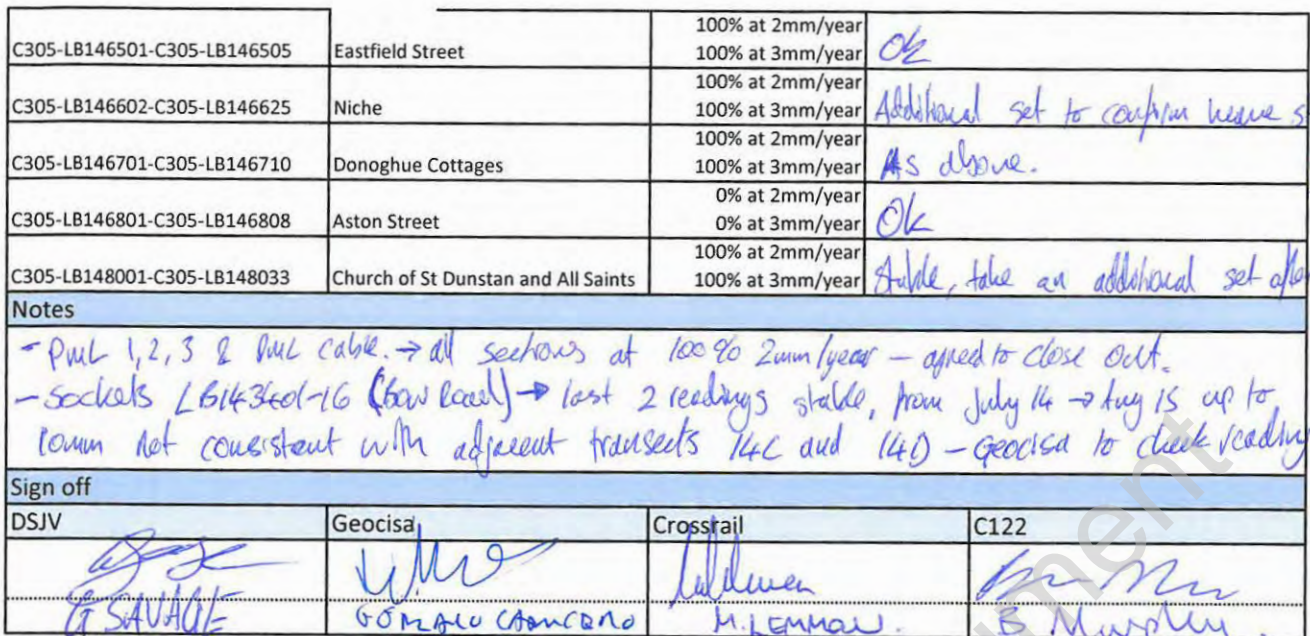 100% at 2mm/year
C305-LB146501-C305-LB146505 Eastfield Street 100% at 3mm/year Ok
100% at 2mm/year
C305-LB146602-C305-LB146625 Niche 100% at 3mm/year Additional set to confirm heave s
100% at 2mm/year
C305-LB146701-C305-LB146710 Donoghue Cottages 100% at 3mm/year As above.
0% at 2mm/year
C305-LB146801-C305-LB146808 Aston Street 0% at 3mm/year Ok
100% at 2mm/year
C305-LB148001-C305-LB148033 Church of St Dunstan and All Saints 100% at 3mm/year Stable, take an additional set after
Notes
- PML 1,2,3 & PML cable. → all sections at 100% 2mm/year - agreed to close out.
- Sockets (Bow Road) → last 2 readings stable, from July 14 → Aug 15 up to
10mm not consistent with adjacent transects 14C and 14D - Geocisa to check reading
Sign off
DSJV Geocisa Crossrail C122
G SAVAGE GONZALO M. LEMMON. B Murphy
ument